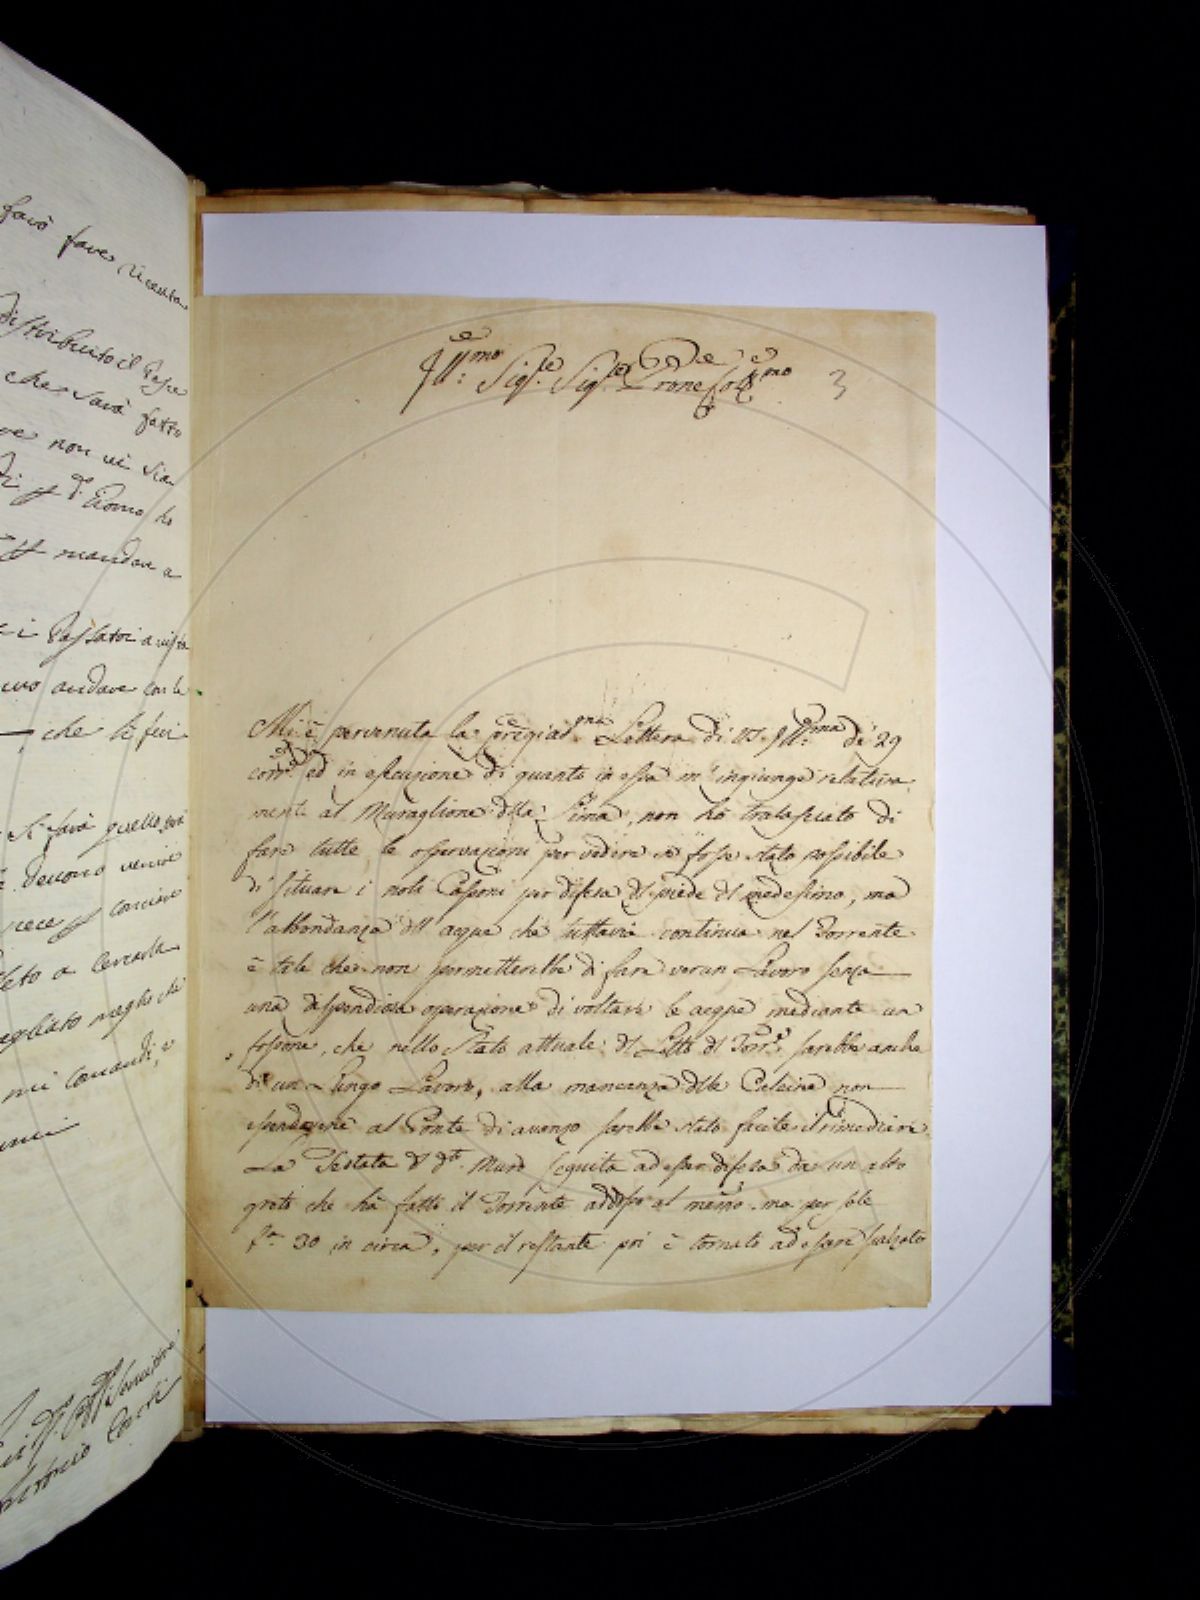 farò fare
distribuito il Pesce
che sarà fatto
non vi sia
Uomo ho
mandare a
i Pescatori a vista
andare con le
che le feci
Si farà quello
devono venire
a cercarla
meglio che
mi comandi, e
Servitore
Antonio
Ill:mo Sig.re Sig.re Prone Col:mo
3
Mi è pervenuta la pregiat.ma Lettera di VS. Ill:ma de 29
corr.e ed in esecuzione di quanto in essa m'ingiunge relativa
mente al Muraglione della Lima, non hò tralasciato di
fare tutte le osservazioni per vedere se fosse stato possibile
di situare i noti Cassoni per difesa del piede del medesimo, ma
l'abbondanza dell'acque che tuttavia continua nel Torrente
è tale che non permetterebbe di fare verun Lavoro senza
una dispendiosa operazione di voltare le acque mediante un
fossone, che nello Stato attuale del Letto del Torr.e sarebbe anche
di un Lungo Lavoro, alla mancanza delle Calcine non
essendovene al Ponte di avanzo sarebbe stato facile il rimediare.
La Testata di d.to Muro seguita ad esser difesa da un alto
greto che hà fatto il Torrente addosso al mem.o ma per sole
B.a 30 in circa, per il restante poi è tornato ad essere scalzato